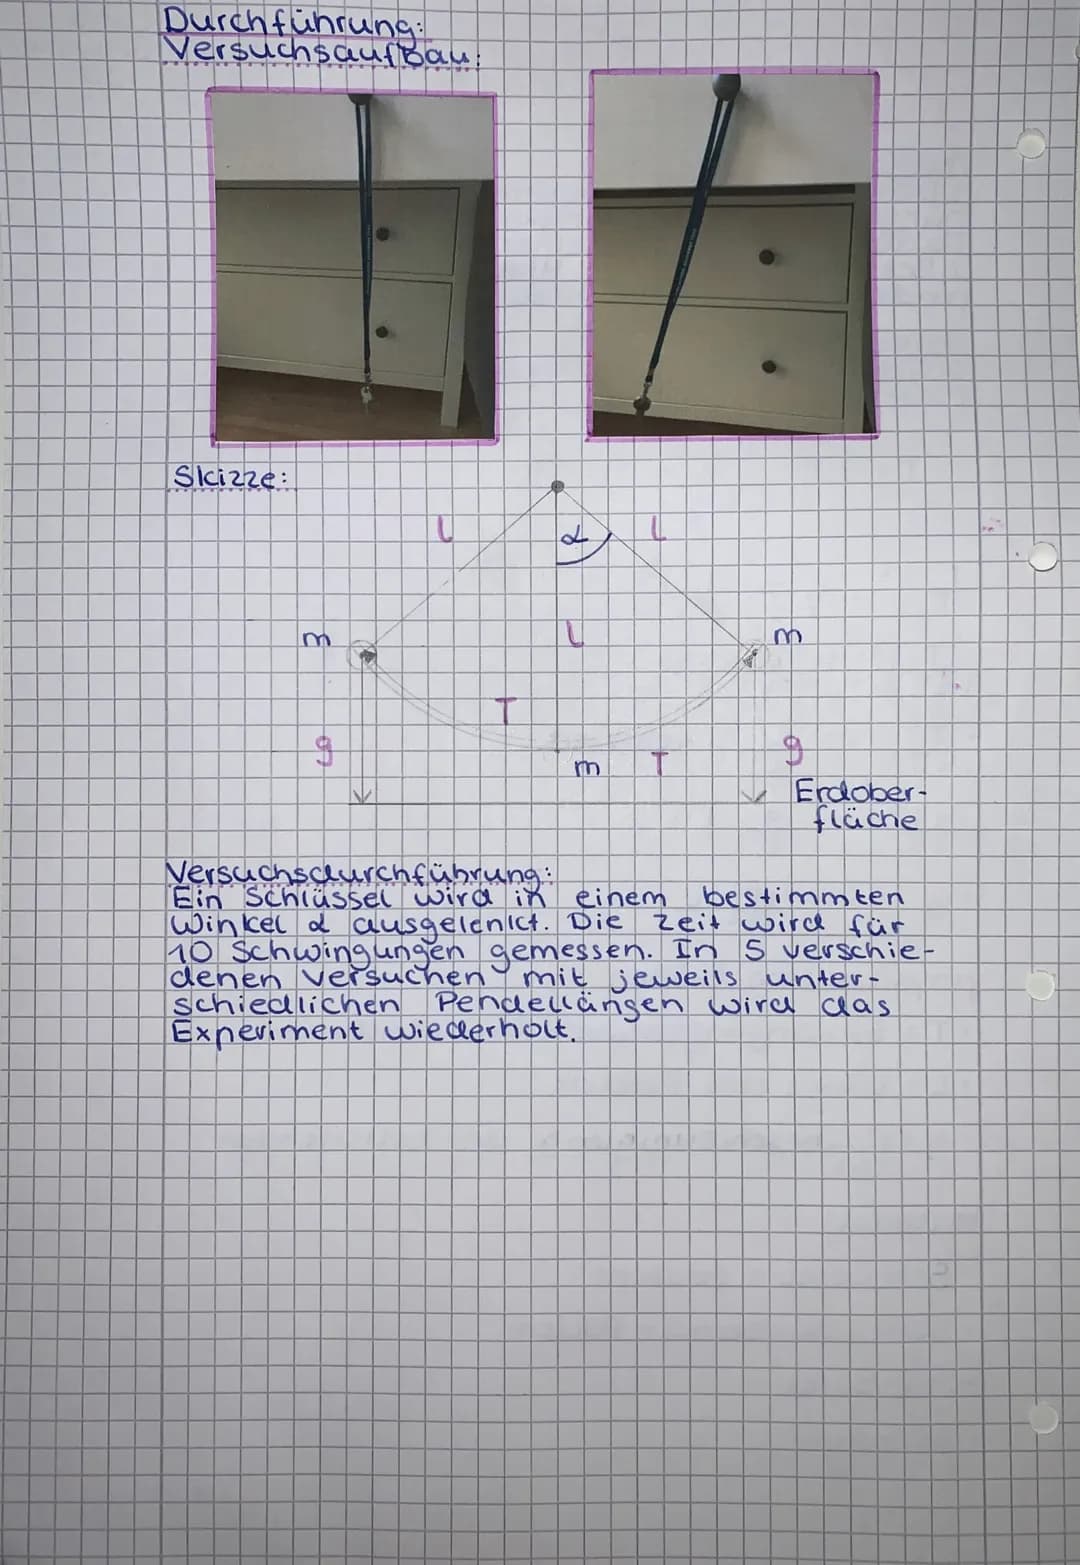 Durchführung:
Versuchsaufbau:
Skizze:
l
α
l
m
l
m
T
g
m
T
g
Erdober-
fläche
Versuchsdurchführung:
Ein Schlüssel wird in einem bestimmten
Winkel α ausgelenkt. Die Zeit wird für
10 Schwingungen gemessen. In 5 verschie-
denen Versuchen mit jeweils unter-
schiedlichen Pendellängen wird das
Experiment wiederholt.